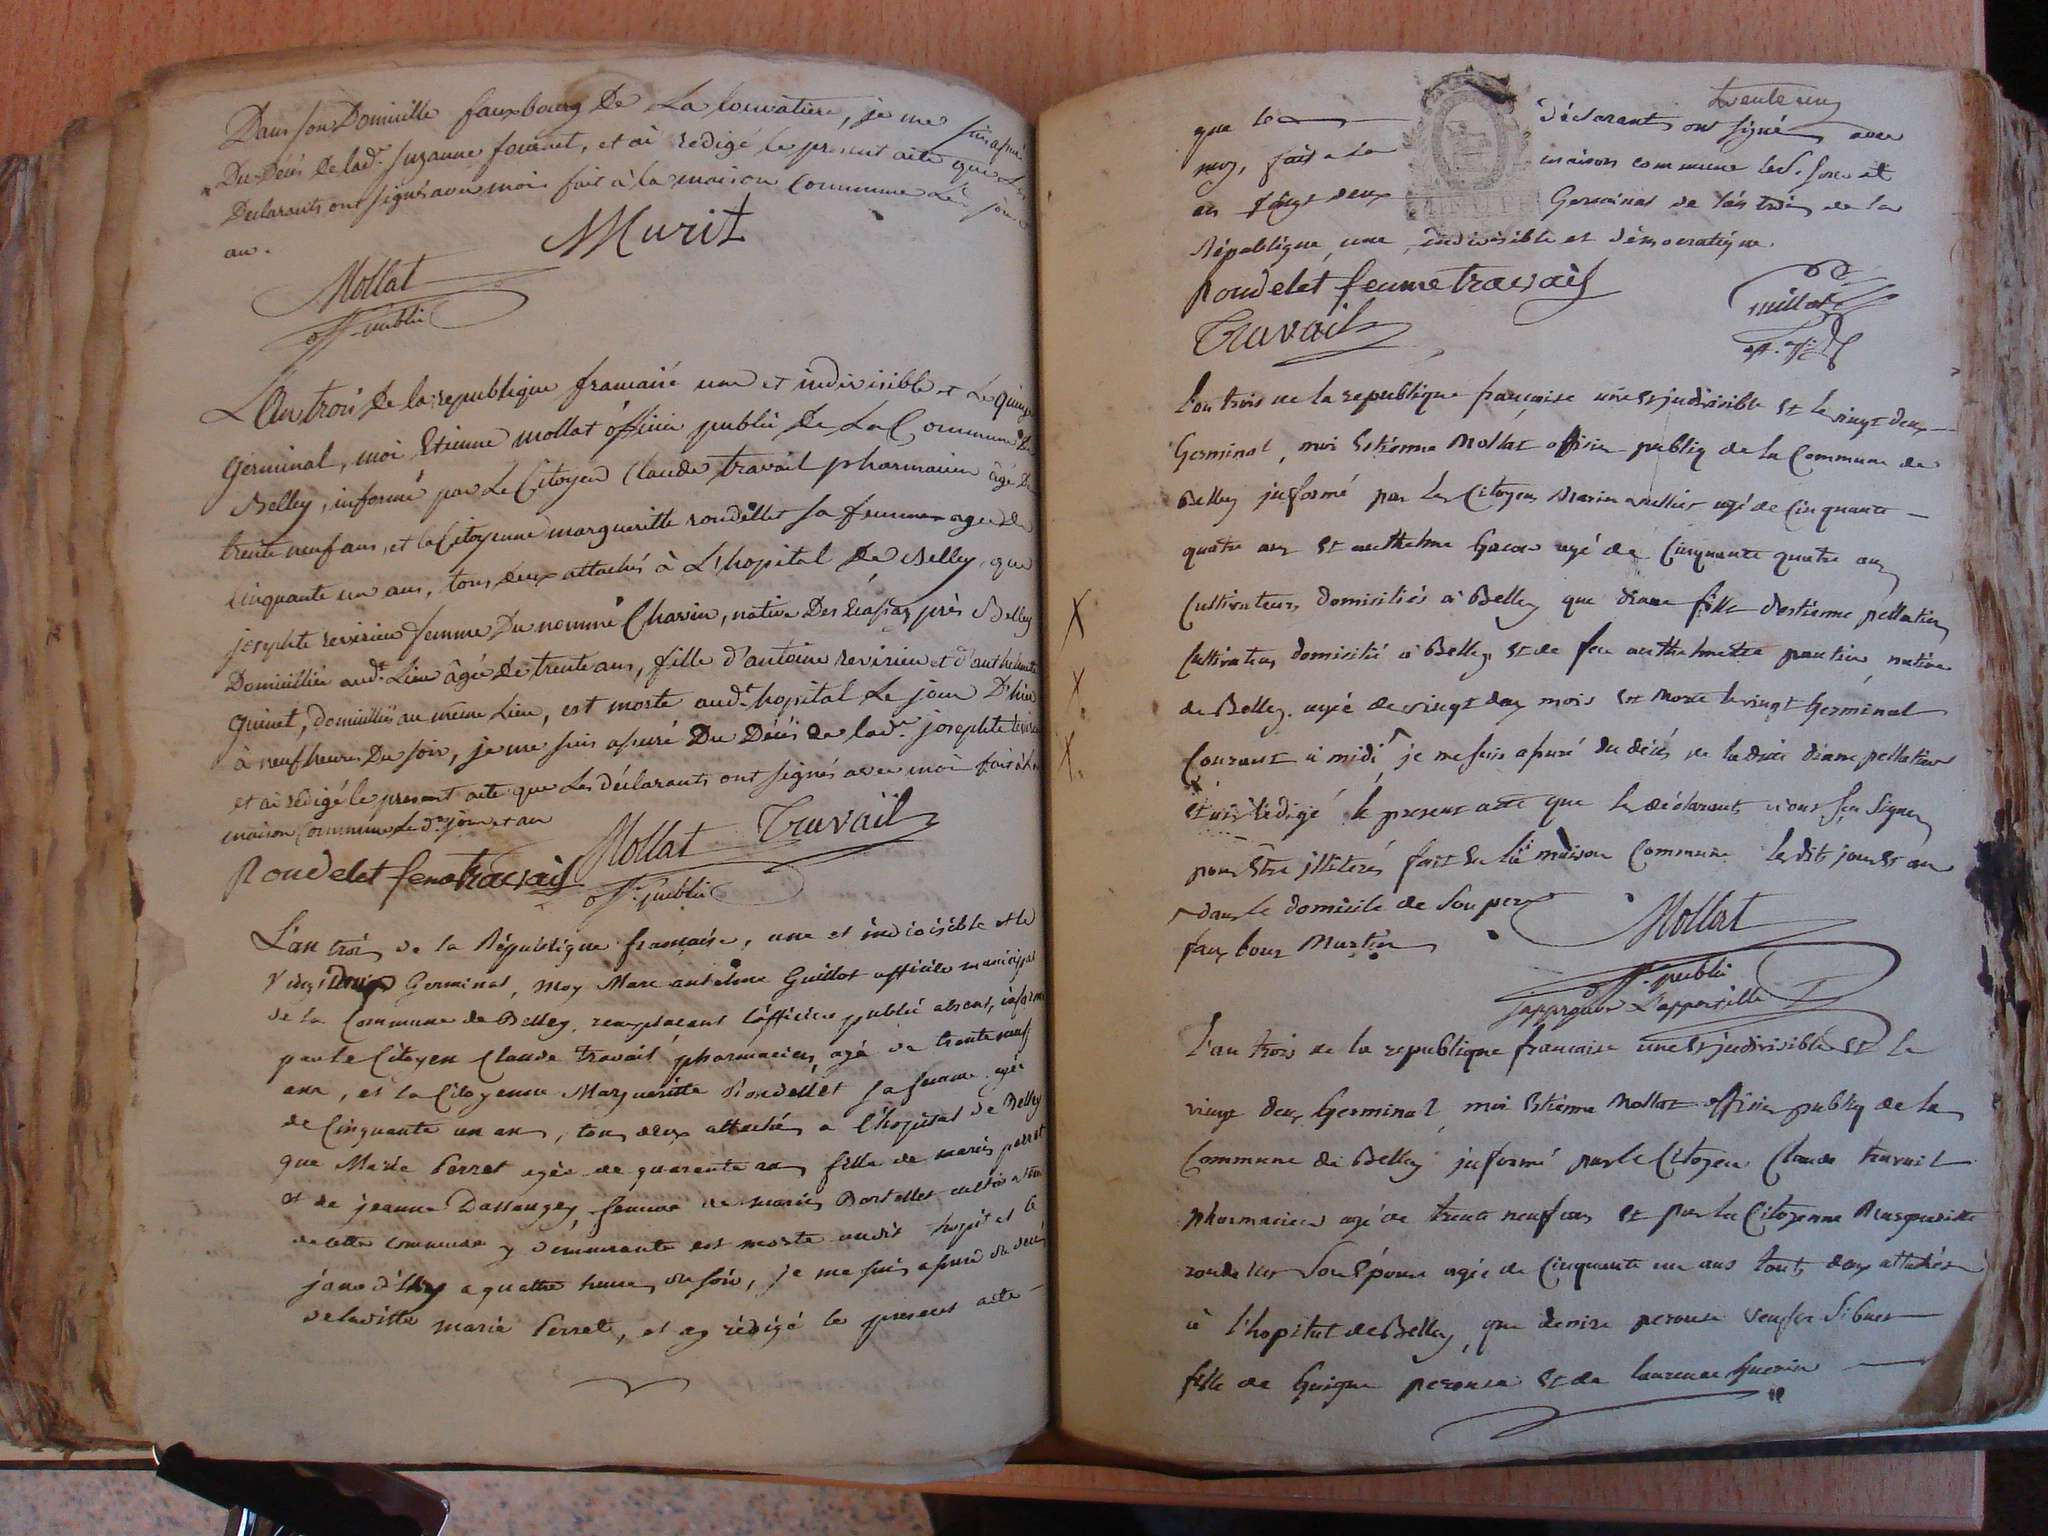 Dans son Domicille fauxbourg De La louvatiere, je me suis assuré
Du Décés De lad.e Suzanne fournet, et ai redigé le present acte que Les
Declarants ont signés avec moi fait à la maison Commune Led. jour et
an.
Murit
Mollat
off. public
L'An trois De la republique francaise une et indivisible et Le quinze
Germinal, moi Etienne mollat officier public De La Commune De
Belley, informé par Le Citoyen Claude travail pharmacien âgé De
trente neuf ans, et la Citoyenne margueritte rondellet sa femme agée de
Cinquante un ans, tous deux attachés à L'hopital De Belley, que
josephte revirieu femme Du nommé Chavin, native Des près Belley
Domicilliée aud.t Lieu âgée De trente ans, fille d'antoine revirieu et d'anthelmette
guinet, domicilliés au même Lieu, est morte aud.t hopital Le jour D'hier
à neuf heures Du soir, je me suis assuré Du Décés De lad.e josephte revirieu
et ai rédigé le present acte que Les déclarants ont signés avec moi fait à la
maison Commune Led.t jour et an
Mollat Travail
Rondelet feme travail
off. public
L'an trois de la République francaise, une et indivisible et le
vingt deux Germinal, moy Marc antelme Guillot officier municipal
de la Commune de Belley, remplacant l'officier public absent, informé
par le Citoyen Claude travail pharmacien, agé de trente neuf
ans, et la Citoyenne Margueritte Rondellet sa femme agée
de Cinquante un ans, tous deux attachés a l'hopital de Belley
que Marie Perret agée de quarante ans fille de marin perret
et de jeanne Dassangey, femme de marin Bartellet cultivateur
de cette commune y demeurante est morte audit hopital le
jour d'hier a quatre heures du soir, je me suis assuré du decés
de laditte marie Perret, et ay rédigé le present acte
trente un
que les déclarants ont signé avec
moy, fait a la maison commune led. jour et
an vingt deux Germinal de l'an trois de la
République, une, indivisible et démocratique.
Rondelet feume travail
Travail
guillot
off.
L'an trois de la republique francaise une et indivisible et le vingt deux
Germinal, moi Estienne Mollat officier publiq de la Commune de
Belley informé par les Citoyens Marin vullier agé de Cinquante
quatre ans et anthelme Gacon agé de Cinquante quatre ans
Cultivateurs domiciliés à Belley que diane fille d'estienne pellatieu
Cultivateur domicilié à Belley et de feu anthelmette pautin native
de Belley agée de vingt deux mois est morte le vingt Germinal
Courant à midi je me suis assuré du décés de la dite diane pellatieu
et ai rédigé le present acte que les déclarants n'ont sçu Signer
pour être illiterés fait en la maison Commune lesdits jour et an
dans le domicile de son pere
faux bour Martin
X
X
X.
Mollat
off. public
j'approuve L'appostille
L'an trois de la republique francaise une et indivisible et le
vingt deux Germinal moi Estienne Mollat officier publiq de la
Commune de Belley informé par le Citoyen Claude travail
pharmacien agé de trente neuf ans et par la Citoyenne Margueritte
rondellet Son Epouse agée de Cinquante un ans touts deux attachés
à l'hopital de Belley, que denise perouse veufve Sibuet
fille de Guigue perouse et de laurence Guerin